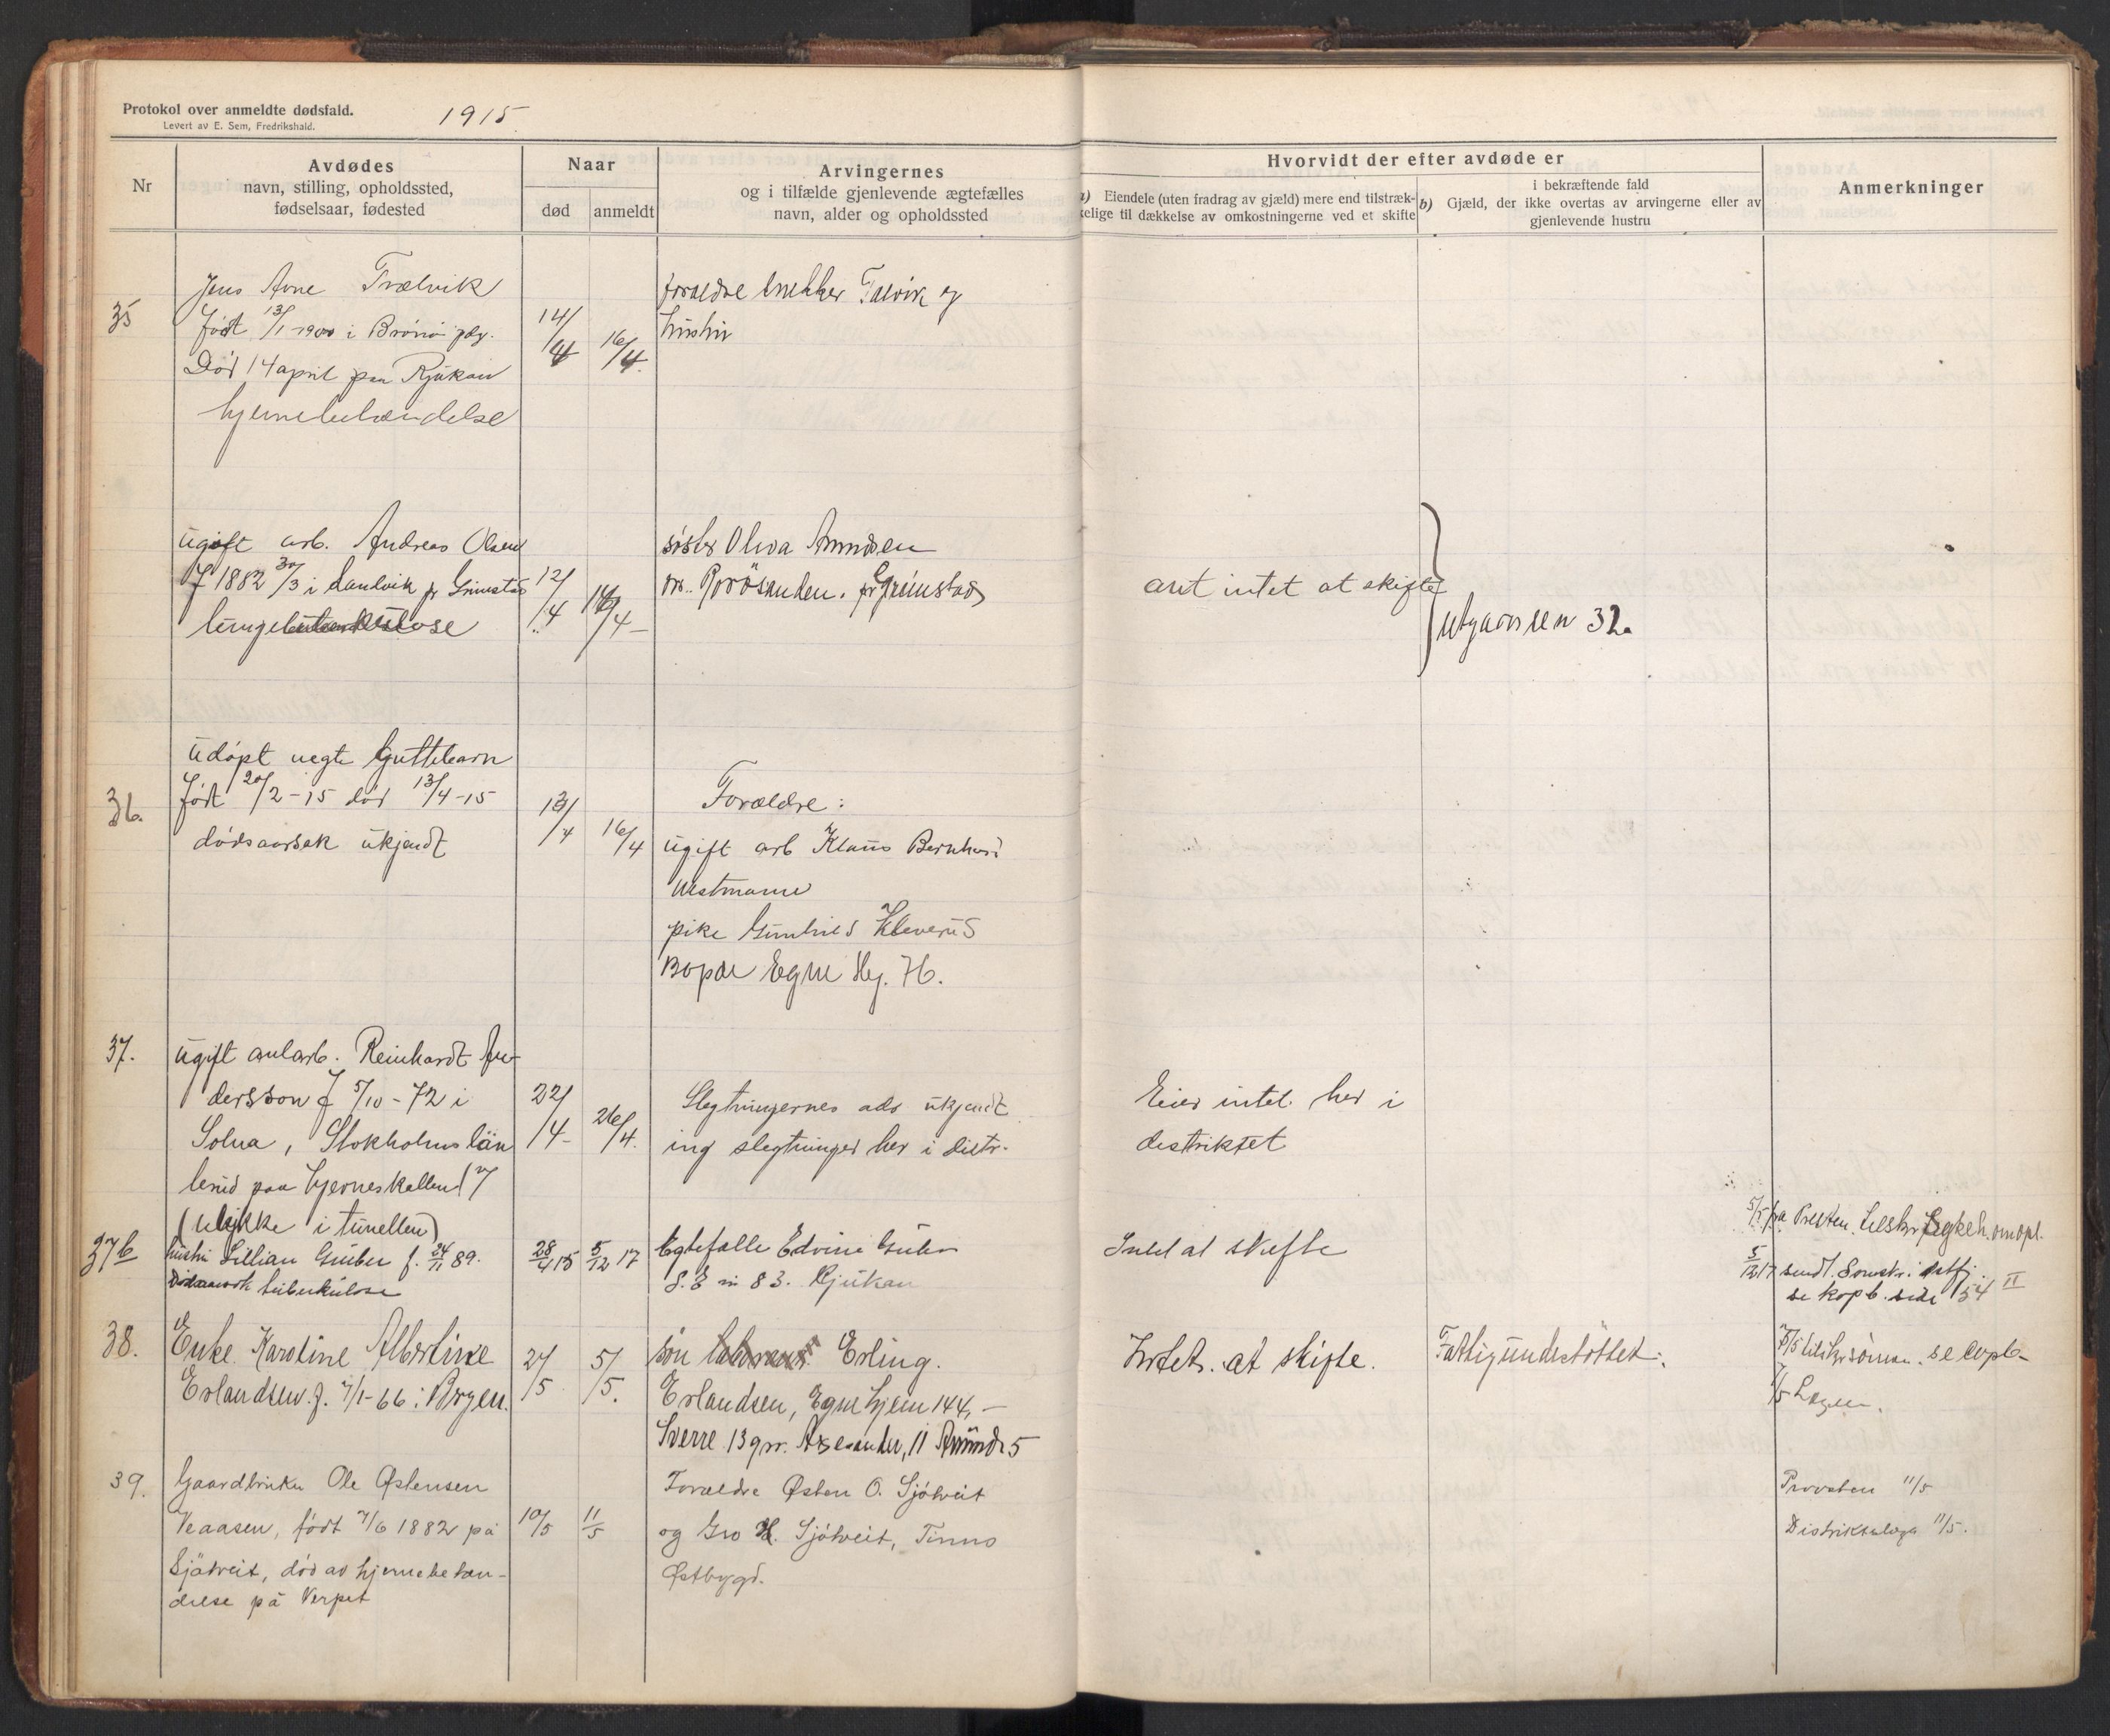 Protokol over anmeldte dødsfald.
Levert av E. Sem, Fredrikshald.
1915
Nr
Avdødes
navn, stilling, opholdssted,
fødselsaar, fødested
Naar
død
anmeldt
Arvingernes
og i tilfælde gjenlevende ægtefælles
navn, alder og opholdssted
Hvorvidt der efter avdøde er
a) Eiendele (uten fradrag av gjæld) mere end tilstræk-
kelige til dækkelse av omkostningerne ved et skifte
i bekræftende fald
b) Gjæld, der ikke overtas av arvingerne eller av
gjenlevende hustru
Anmerkninger
35
Jens Arne Trælvik
født 13/1 1900 i Brönö pgj.
Död 14 april paa Rjukan
hjernebetændelse
14/4
16/4.
forældre Trælvik og
hustru
ugift arb. Andreas Olsen
f 1882 30/3 i Landvik pr Grimstad
12/4
16/4
søster Oliva Amundsen
pr Grimstad
arvt intet at skifte
utgaar se nr 32.
36.
udöpt uegte Guttebarn
födt 20/2-15 död 13/4-15
dödsaarsak ukjendt
13/4
16/4
Forældre:
ugift arb Klaus Bernhard
Vestmanne
pike Gunhild Kleverud
Bopæl Egne Hj. 76.
37.
ugift anlarb. Reinhardt An-
dersson f 5/10-72 i
Solna, Stokholms län
brud paa hjerneskallen
(ulykke i tunellen)
22/4-
26/4.
Slegtningernes adr ukjendt
ing slegtninger her i distr.
Eier intet her i
distriktet
37b
hustru Lillian Gruber f. 24/11 89.
Dödsaarsak tuberkulose
28/4 15
5/12 17
Egtefælle Edvin Gruber
S. E m 83. Rjukan
Intet at skifte
5/12 17 sendt Sorenskr. i Østfj
se kopb. side 54 II
38.
Enke Karoline Albertine
Erlandsen f. 7/1-66 i Bergen.
2/5
5/5.
sön Erling.
Erlandsen, Egne hjem 144, -
Sverre 13 gr. Alexander, 11 Amund 5
Intet at skifte.
Fattigunderstöttet.
7/5 Lægen.
39.
Gaardbruker Ole Østensen
Veaasen, født 7/6 1882 på
Sjåtveit, död av hjernebetæn-
delse på Verpet
10/5
11/5
Forældre Østen O. Sjötveit
og Gro H. Sjötveit, Tinns
Østbygd.
Provsten 11/5
Distriktslæge 11/5.